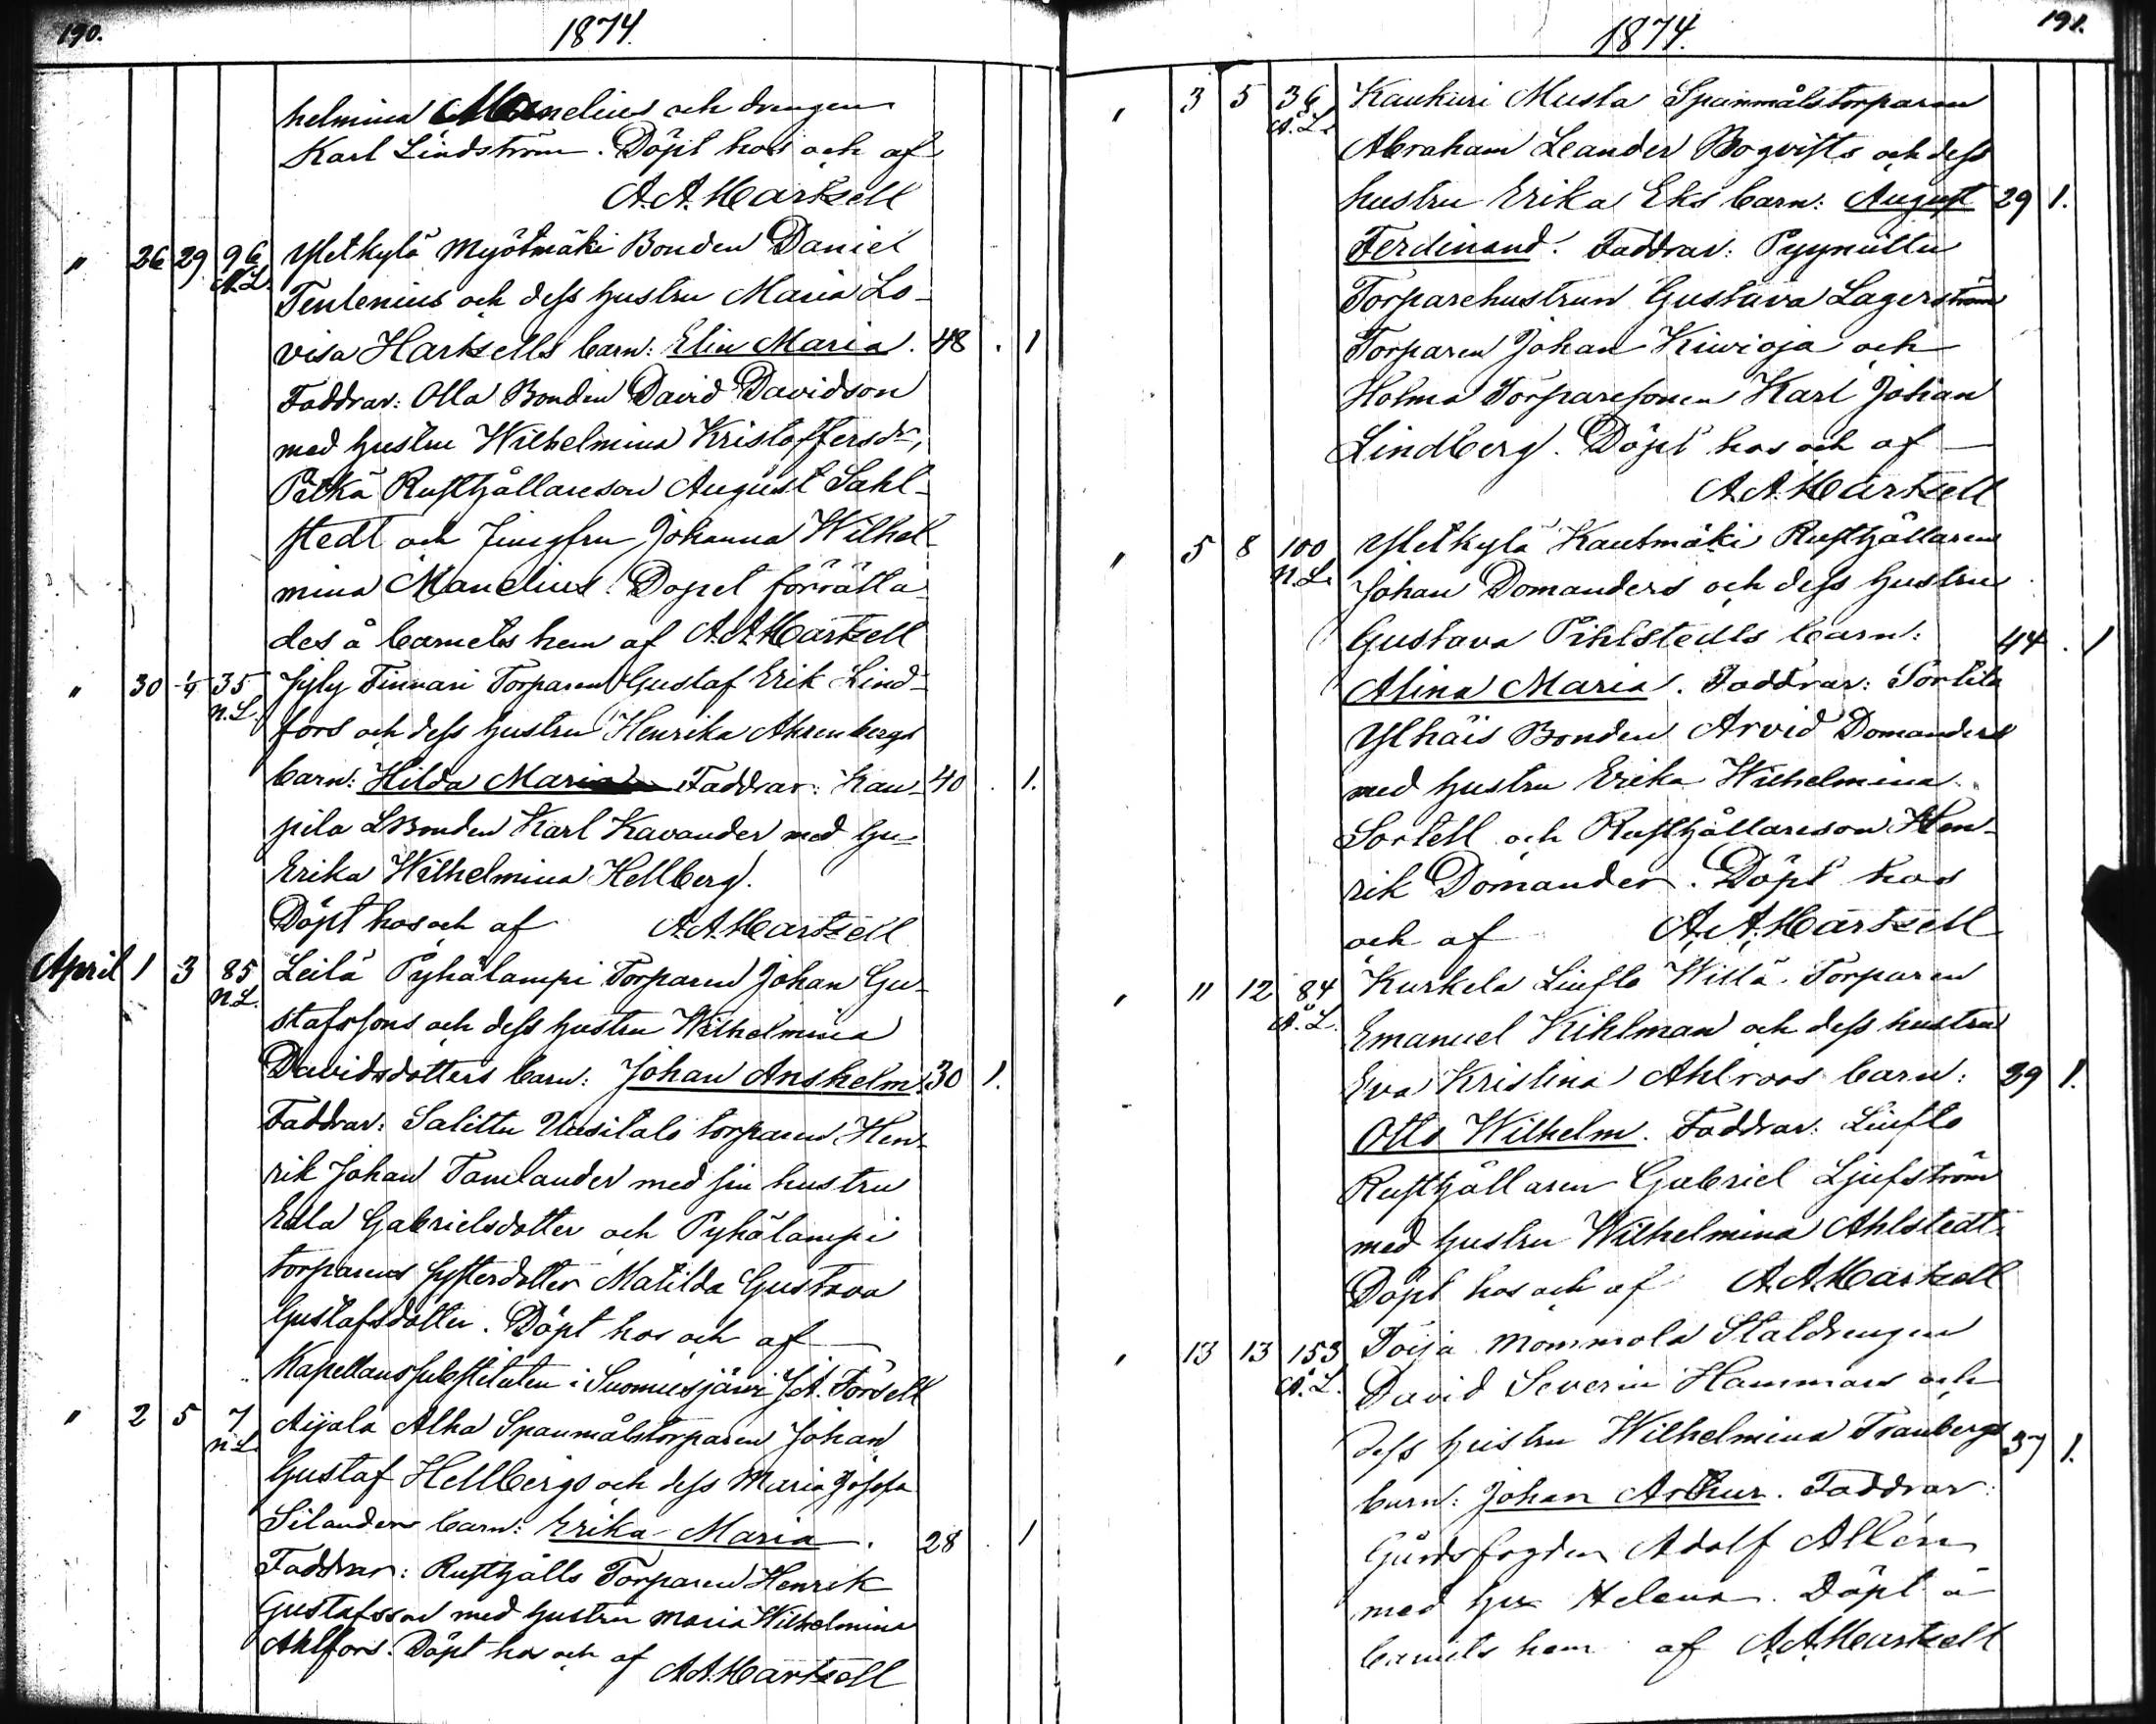 190.
1874.
helmina Manelius och drengen
Karl Lindström. Döpt hos och af
A.A. Hartzell
" 26 29 96 N.L. Yletkylä Myötmäki Bonden Daniel
Tenlenius och dess hustru Maria Lo-
visa Hartzells barn: Elin Maria. 48 . 1
Faddrar: Olla Bonden David Davidson
med hustru Wilhelmina Kristoffersdr,
Pitkä Rusthållareson August Sahl-
stedt och Jungfru Johanna Wilhel-
mina Manelius. Dopet förrätta-
des å barnets hem af A.A. Hartzell
" 30 1/4 35 N.L. Jyly Finnari Torparen Gustaf Erik Lind-
fors och dess hustru Henrika Ahrenbergs
barn: Hilda Maria Faddrar: Kau- 40 . 1.
pila LBonden Karl Kavander med hu-
Erika Wilhelmina Hellberg.
Döpt hos och af A.A. Hartzell
April 1 3 85 N.L. Leilä Pyhälampi Torparen Johan Gu-
stafssons och dess hustru Wilhelmina
Davidsdotters barn: Johan Anshelm 30 1.
Faddrar: Salittu Uusitalo torparen Hen-
rik Johan Tamlander med sin hustru
Edla Gabrielsdotter och Pyhälampi
torparens systerdotter Matilda Gustava
Gustafsdotter. Döpt hos och af
Kapellanssubstituten i Suomusjärvi J.A. Forsell
" 2 5 7 N.L. Aijala Alha Spanmålstorparen Johan
Gustaf Hellbergs och dess Maria Josefa
Silanders barn: Erika Maria. 28 . 1
Faddrar: Rusthålls Torparen Henrik
Gustafsson med hustru Maria Wilhelmina
Ahlfors. Döpt hos och af A.A. Hartzell
191.
1874.
" 3 5 36 Å.L. Kaukuri Musta Spanmålstorparen
Abraham Leander Bogvists och dess
hustru Erika Eks barn: August 29 1.
Ferdinand. Faddrar: Pyymittu
Torparehustrun Gustava Lagerström
Torparen Johan Kivioja och
Holma Torparesonen Karl Johan
Lindberg. Döpt hos och af
A.A. Hartzell
" 5 8 100 N.L. Yletkylä Kautmäki Rusthållaren
Johan Domanders och dess hustru
Gustava Pihlstedts barn: 44 . 1
Alina Maria. Faddrar: Sortila
Ylhäis Bonden Arvid Domander
med hustru Erika Wilhelmina
Sortell och Rusthållareson Hen-
rik Domander. Döpt hos
och af A.A. Hartzell
" 11 12 84 Å.L. Kurkela Liuflo Willä Torparen
Emanuel Kihlman och dess hustru
Eva Kristina Ahlroos barn: 29 1.
Otto Wilhelm. Faddrar: Liuflo
Rusthållaren Gabriel Ljufström
med hustru Wilhelmina Ahlstedt.
Döpt hos och af A.A. Hartzell
" 13 13 153 Å.L. Toija Mommola Staldrengen
David Severin Hammars och
dess hustru Wilhelmina Tranbergs 37 1.
barn: Johan Arthur. Faddrar:
Gårdsfogden Adolf Allén
med hu Helena. Döpt å
barnets hem af A.A. Hartzell